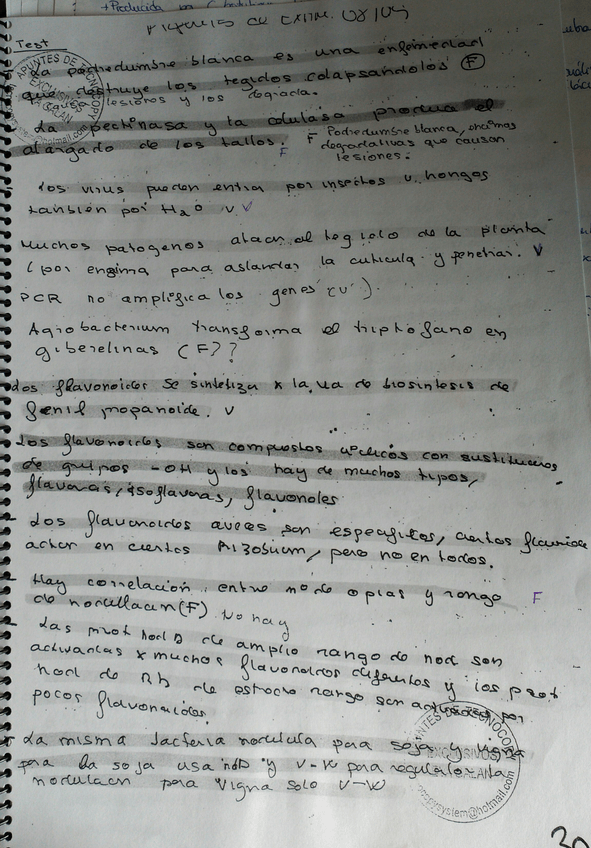 + Producida por
PREGUNTAS DE EXAM. 08/09
Test
La podredumbre blanca es una enfermedad
que destruye los tegidos colapsándolos (F)
lesions y los degrada.
La pectinasa y la celulasa produce el
alargado de los tallos. F
F Podredumbre blanca, enzimas
degradativas que causan
lesiones.
Los virus pueden entrar por insectos u hongos
también por H2O V V
Muchos patogenos atacan al tegido de la planta
(por enzima para ablandar la cuticula y penetrar. V
PCR no amplifica los genes (V).
Agrobacterium transforma el triptofano en
giberelinas (F)??
Los flavonoides se sintetiza x la via de biosintesis de
fenil propanoide. V
Los flavonoides son compuestos con
de grupos -OH y los hay de muchos tipos,
flavonas, isoflavonas, flavonoles
- Los flavonoides aveces son especificos, ciertos
actuan en ciertos Rizobium, pero no en todos.
- Hay correlación entre nº de copias y rango F
de nodulacion (F) No hay
- Las prot nod D de amplio rango de nod son
activadas x muchos flavonoides diferentes y los prot
nod D de Rh de estrecho rango son activadas por
pocos flavonoides.
- La misma bacteria nodula para soja y vigna
para la soja usa nod D y V-W para regular la
nodulacn para vigna solo V-W
APUNTES DE TECNOCOPY
EXCLUSIVOS
CATALAN
APUNTES DE TECNOCOPY
EXCLUSIVOS
CATALAN
copysystem@hotmail.com
30